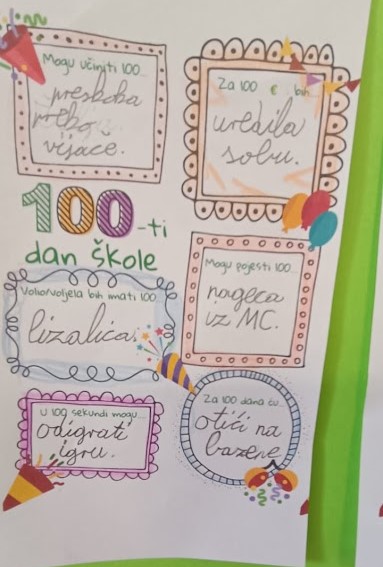 Mogu učiniti 100
preskoka
preko
vijače.
Za 100 € bih
uredila
sobu.
100-ti
dan škole
Mogu pojesti 100
nageca
iz MC.
Volio/voljela bih imati 100
lizalica.
U 100 sekundi mogu...
odigrati
igru.
Za 100 dana ću...
otići na
bazene.